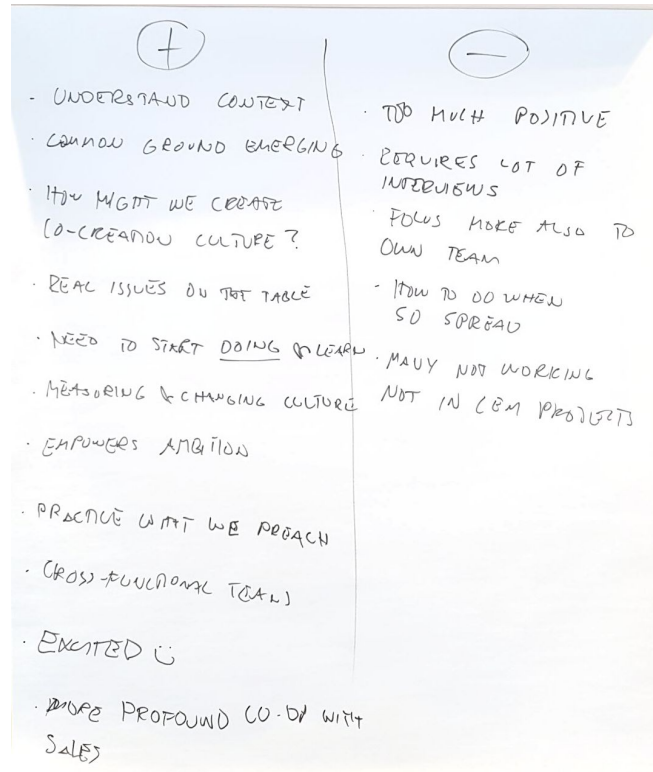 +
- UNDERSTAND CONTEXT
· COMMON GROUND EMERGING
· HOW MIGHT WE CREATE
CO-CREATION CULTURE?
· REAL ISSUES ON THE TABLE
· NEED TO START DOING & LEARN
· MEASURING & CHANGING CULTURE
· EMPOWERS AMBITION
· PRACTICE WHAT WE PREACH
· CROSS-FUNCTIONAL TEAMS
· EXCITED ü
· MORE PROFOUND CO-OP WITH
SALES
−
· TOO MUCH POSITIVE
· REQUIRES LOT OF
INTERVIEWS
· FOCUS MORE ALSO TO
OWN TEAM
- HOW TO DO WHEN
SO SPREAD
· MANY NOT WORKING
NOT IN CEM PROJECTS